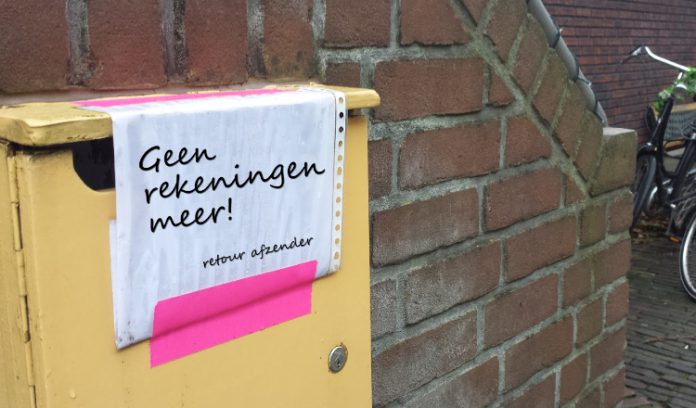 Geen
rekeningen
meer!
retour afzender